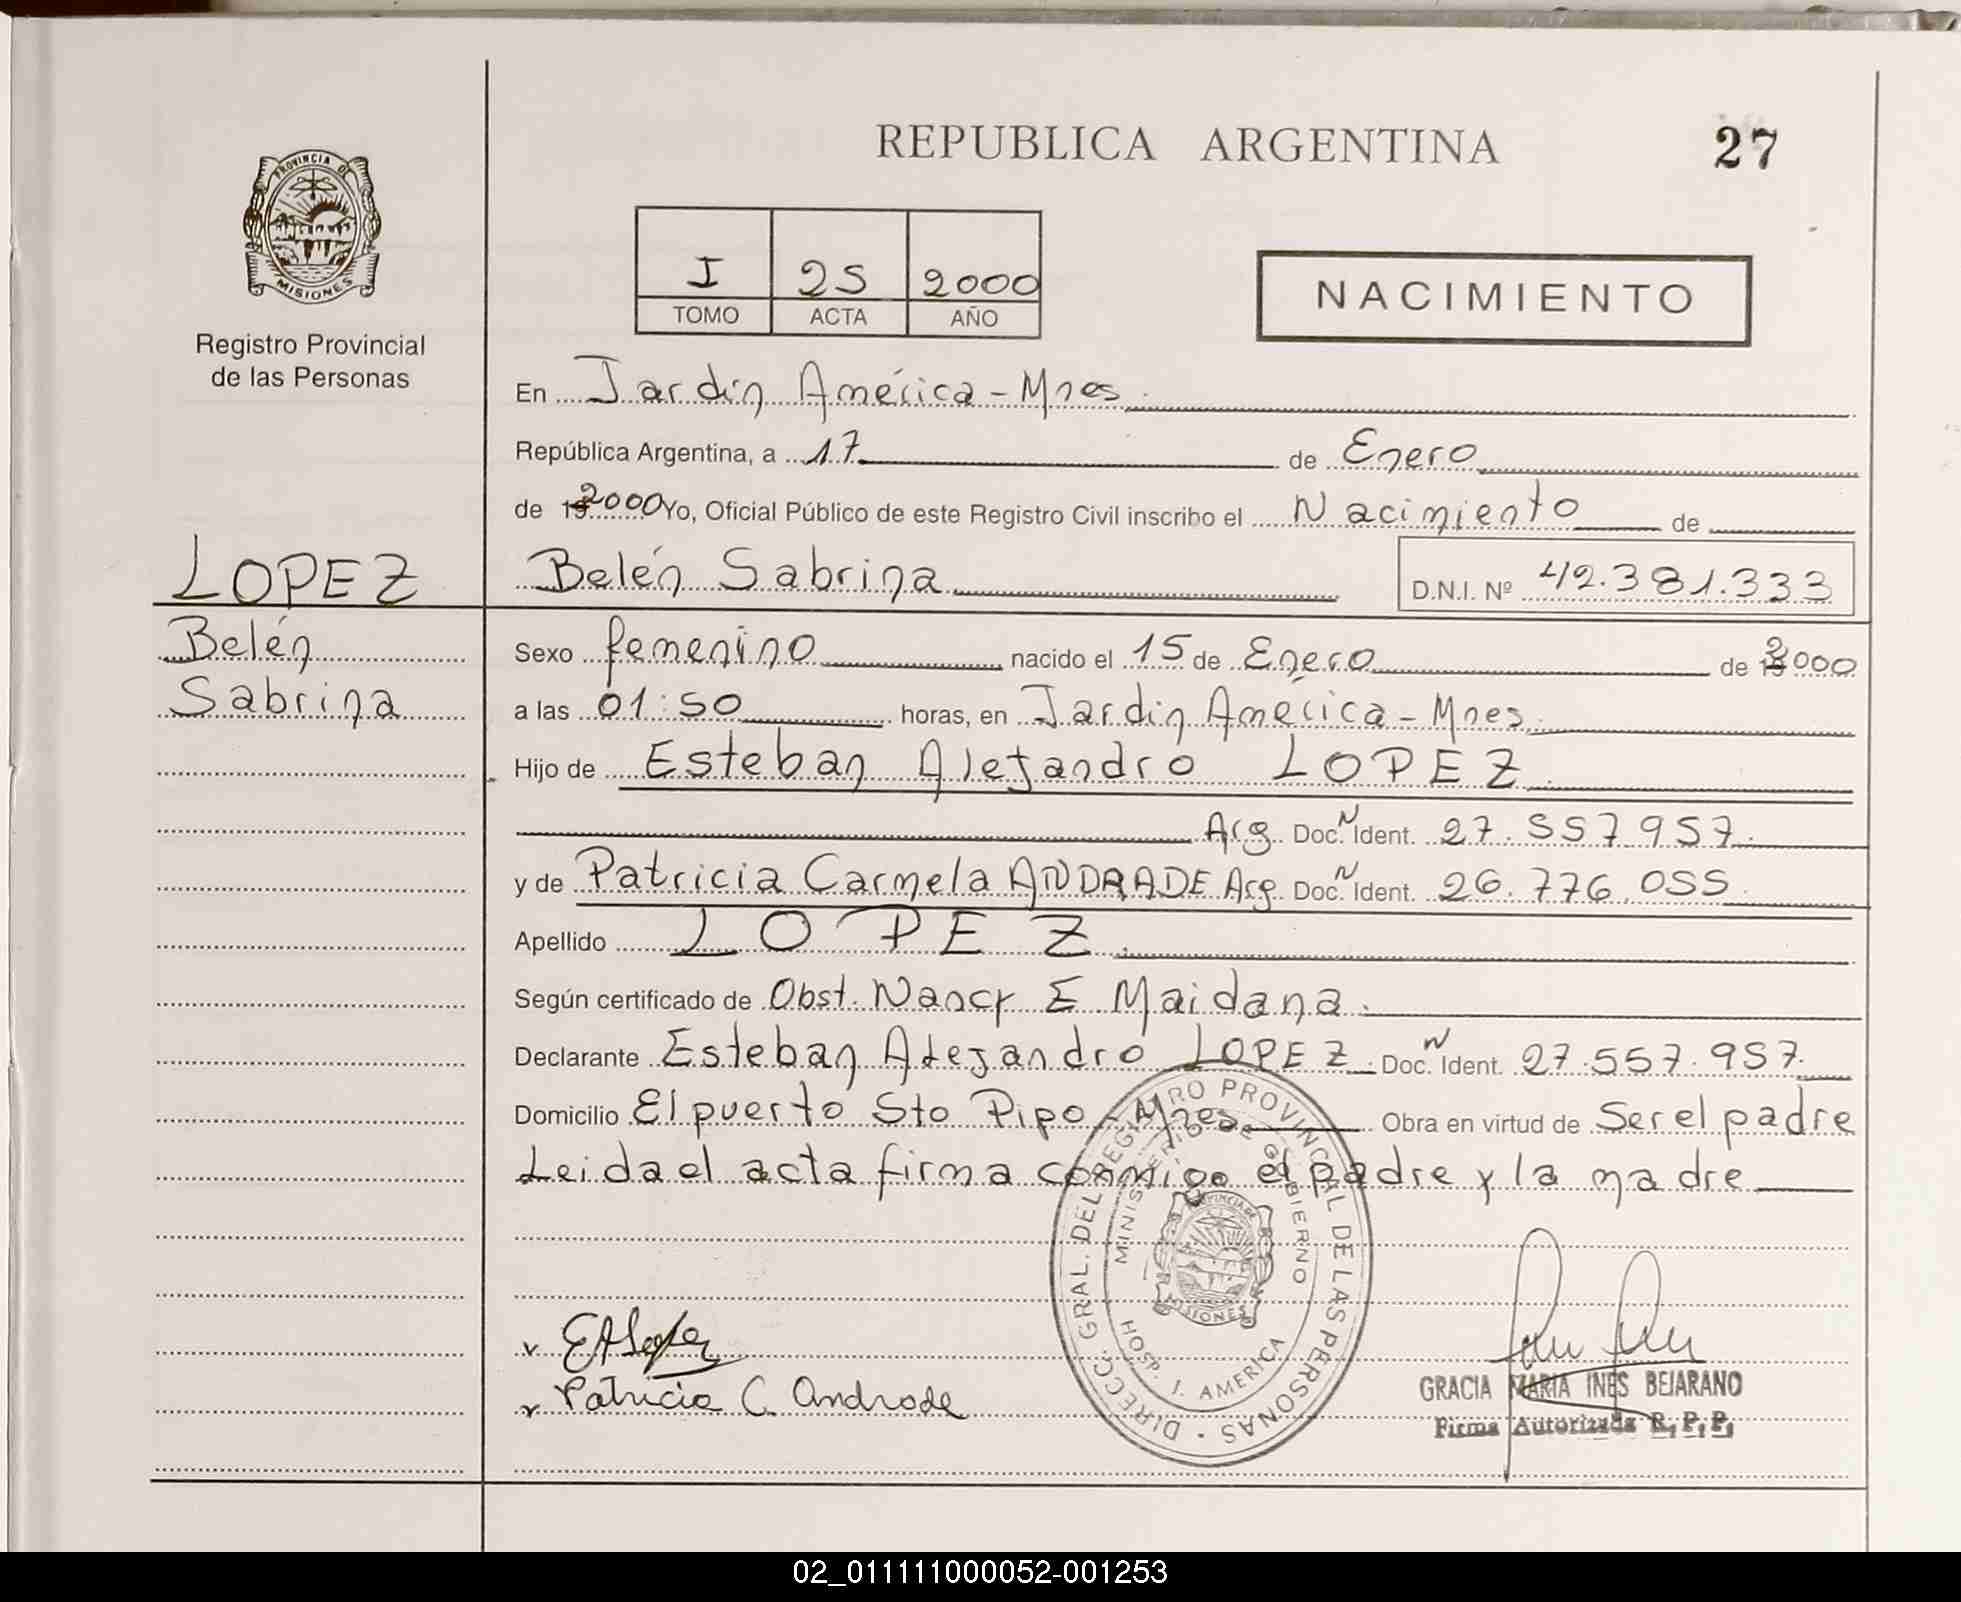 REPUBLICA ARGENTINA
27
PROVINCIA DE
MISIONES
Registro Provincial
de las Personas
I 25 2000
TOMO ACTA AÑO
NACIMIENTO
En Jardín América - Mnes.
República Argentina, a 17 de Enero
de 2000 Yo, Oficial Público de este Registro Civil inscribo el Nacimiento de
LOPEZ
Belén Sabrina D.N.I. Nº 42.381.333
Belén
Sabrina
Sexo femenino nacido el 15 de Enero de 2000
a las 01:50 horas, en Jardín América - Mnes.
Hijo de Esteban Alejandro LOPEZ
Arg. Doc. N Ident. 27.557957.
y de Patricia Carmela ANDRADE Arg. Doc. N Ident. 26.776.055
Apellido LOPEZ.
Según certificado de Obst. Nancy E Maidana.
Declarante Esteban Alejandro LOPEZ Doc. N Ident. 27.557.957.
Domicilio El puerto Sto Pipo - Mnes Obra en virtud de Ser el padre
Leida el acta firma conmigo el padre y la madre
DIRECC. GRAL. DEL REGISTRO PROVINCIAL DE LAS PERSONAS
MINISTERIO DE GOBIERNO
PROVINCIA DE
MISIONES
HOSP. J. AMERICA
EALopez
Patricia C. Andrade
GRACIA MARIA INES BEJARANO
Firma Autorizada R.P.P.
02_011111000052-001253